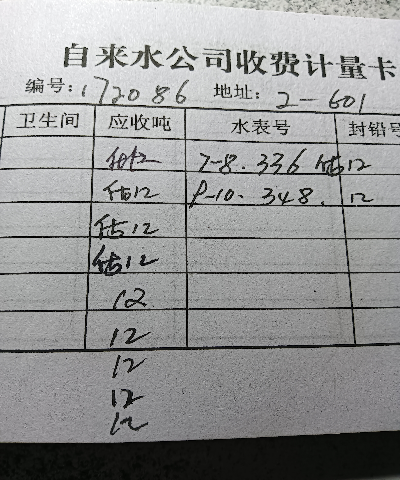 自来水公司收费计量卡
编号: 172086 地址: 2-601
卫生间 应收吨 水表号 封铅号
估12 7-8. 336 估12
估12 9-10. 348. 12
估12
估12
12
12
12
12
12